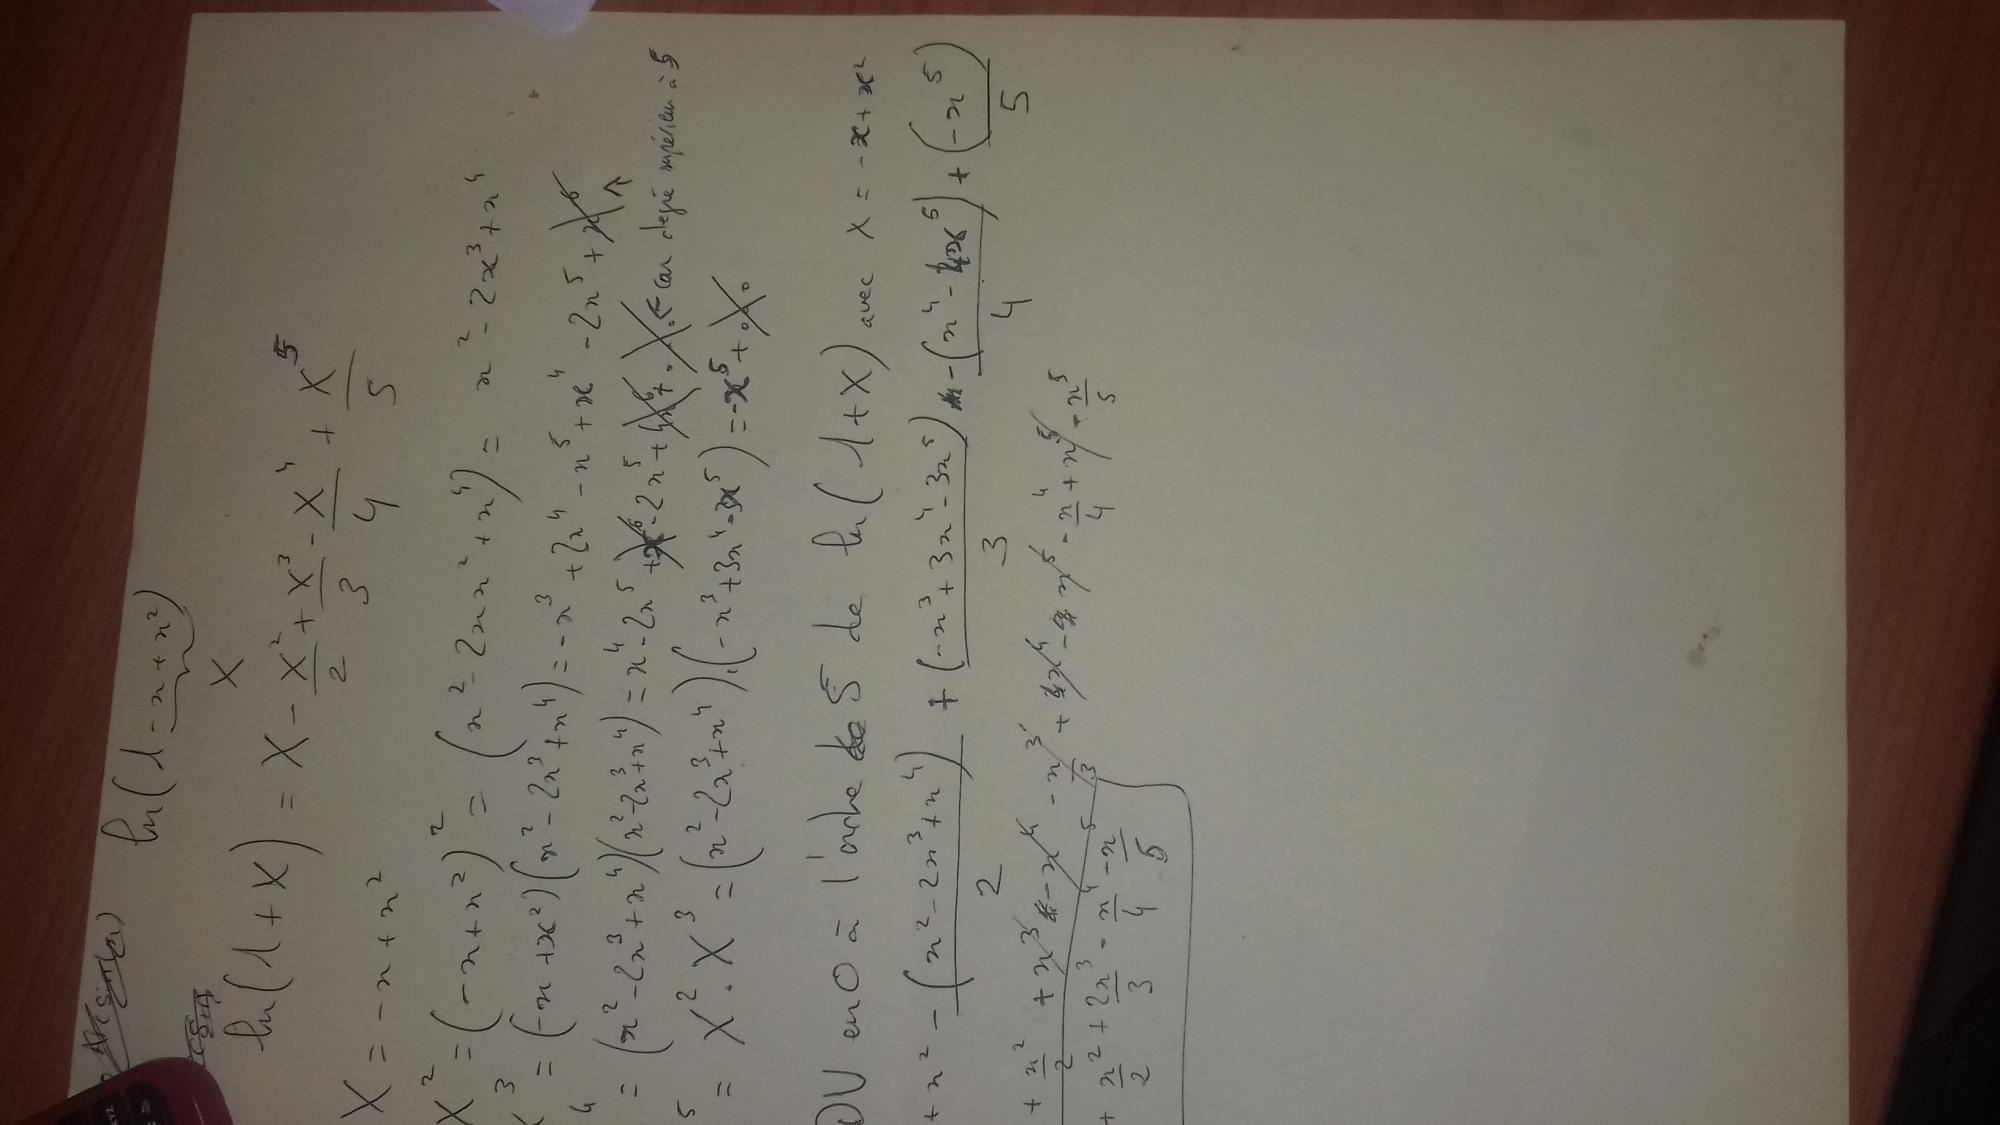 ln(1-x+x²)
X
ln(1+X) = X - X²/2 + X³/3 - X⁴/4 + X⁵/5
X = -x+x²
X² = (-x+x²)² = (x²-2xx²+x⁴) = x²-2x³+x⁴
X³ = (-x+x²)(x²-2x³+x⁴) = -x³+2x⁴-x⁵+x⁴-2x⁵+x⁶
4 = (x²-2x³+x⁴)(x²-2x³+x⁴) = x⁴-2x⁵+x⁶-2x⁵+4x⁶+... ← car degré supérieur à 5
5 = X².X³ = (x²-2x³+x⁴).(-x³+3x⁴-3x⁵) = -x⁵+...
DV en 0 à l'ordre 5 de ln(1+X) avec X = -x+x²
+x² - (x²-2x³+x⁴)/2 + (-x³+3x⁴-3x⁵)/3 - (x⁴-4x⁵)/4 + (-x⁵)/5
+ x²/2 + x³ - x⁴/2 - x³/3 + x⁴ - x⁵ - x⁴/4 + x⁵ - x⁵/5
+ x²/2 + 2x³/3 - x⁴/4 - x⁵/5